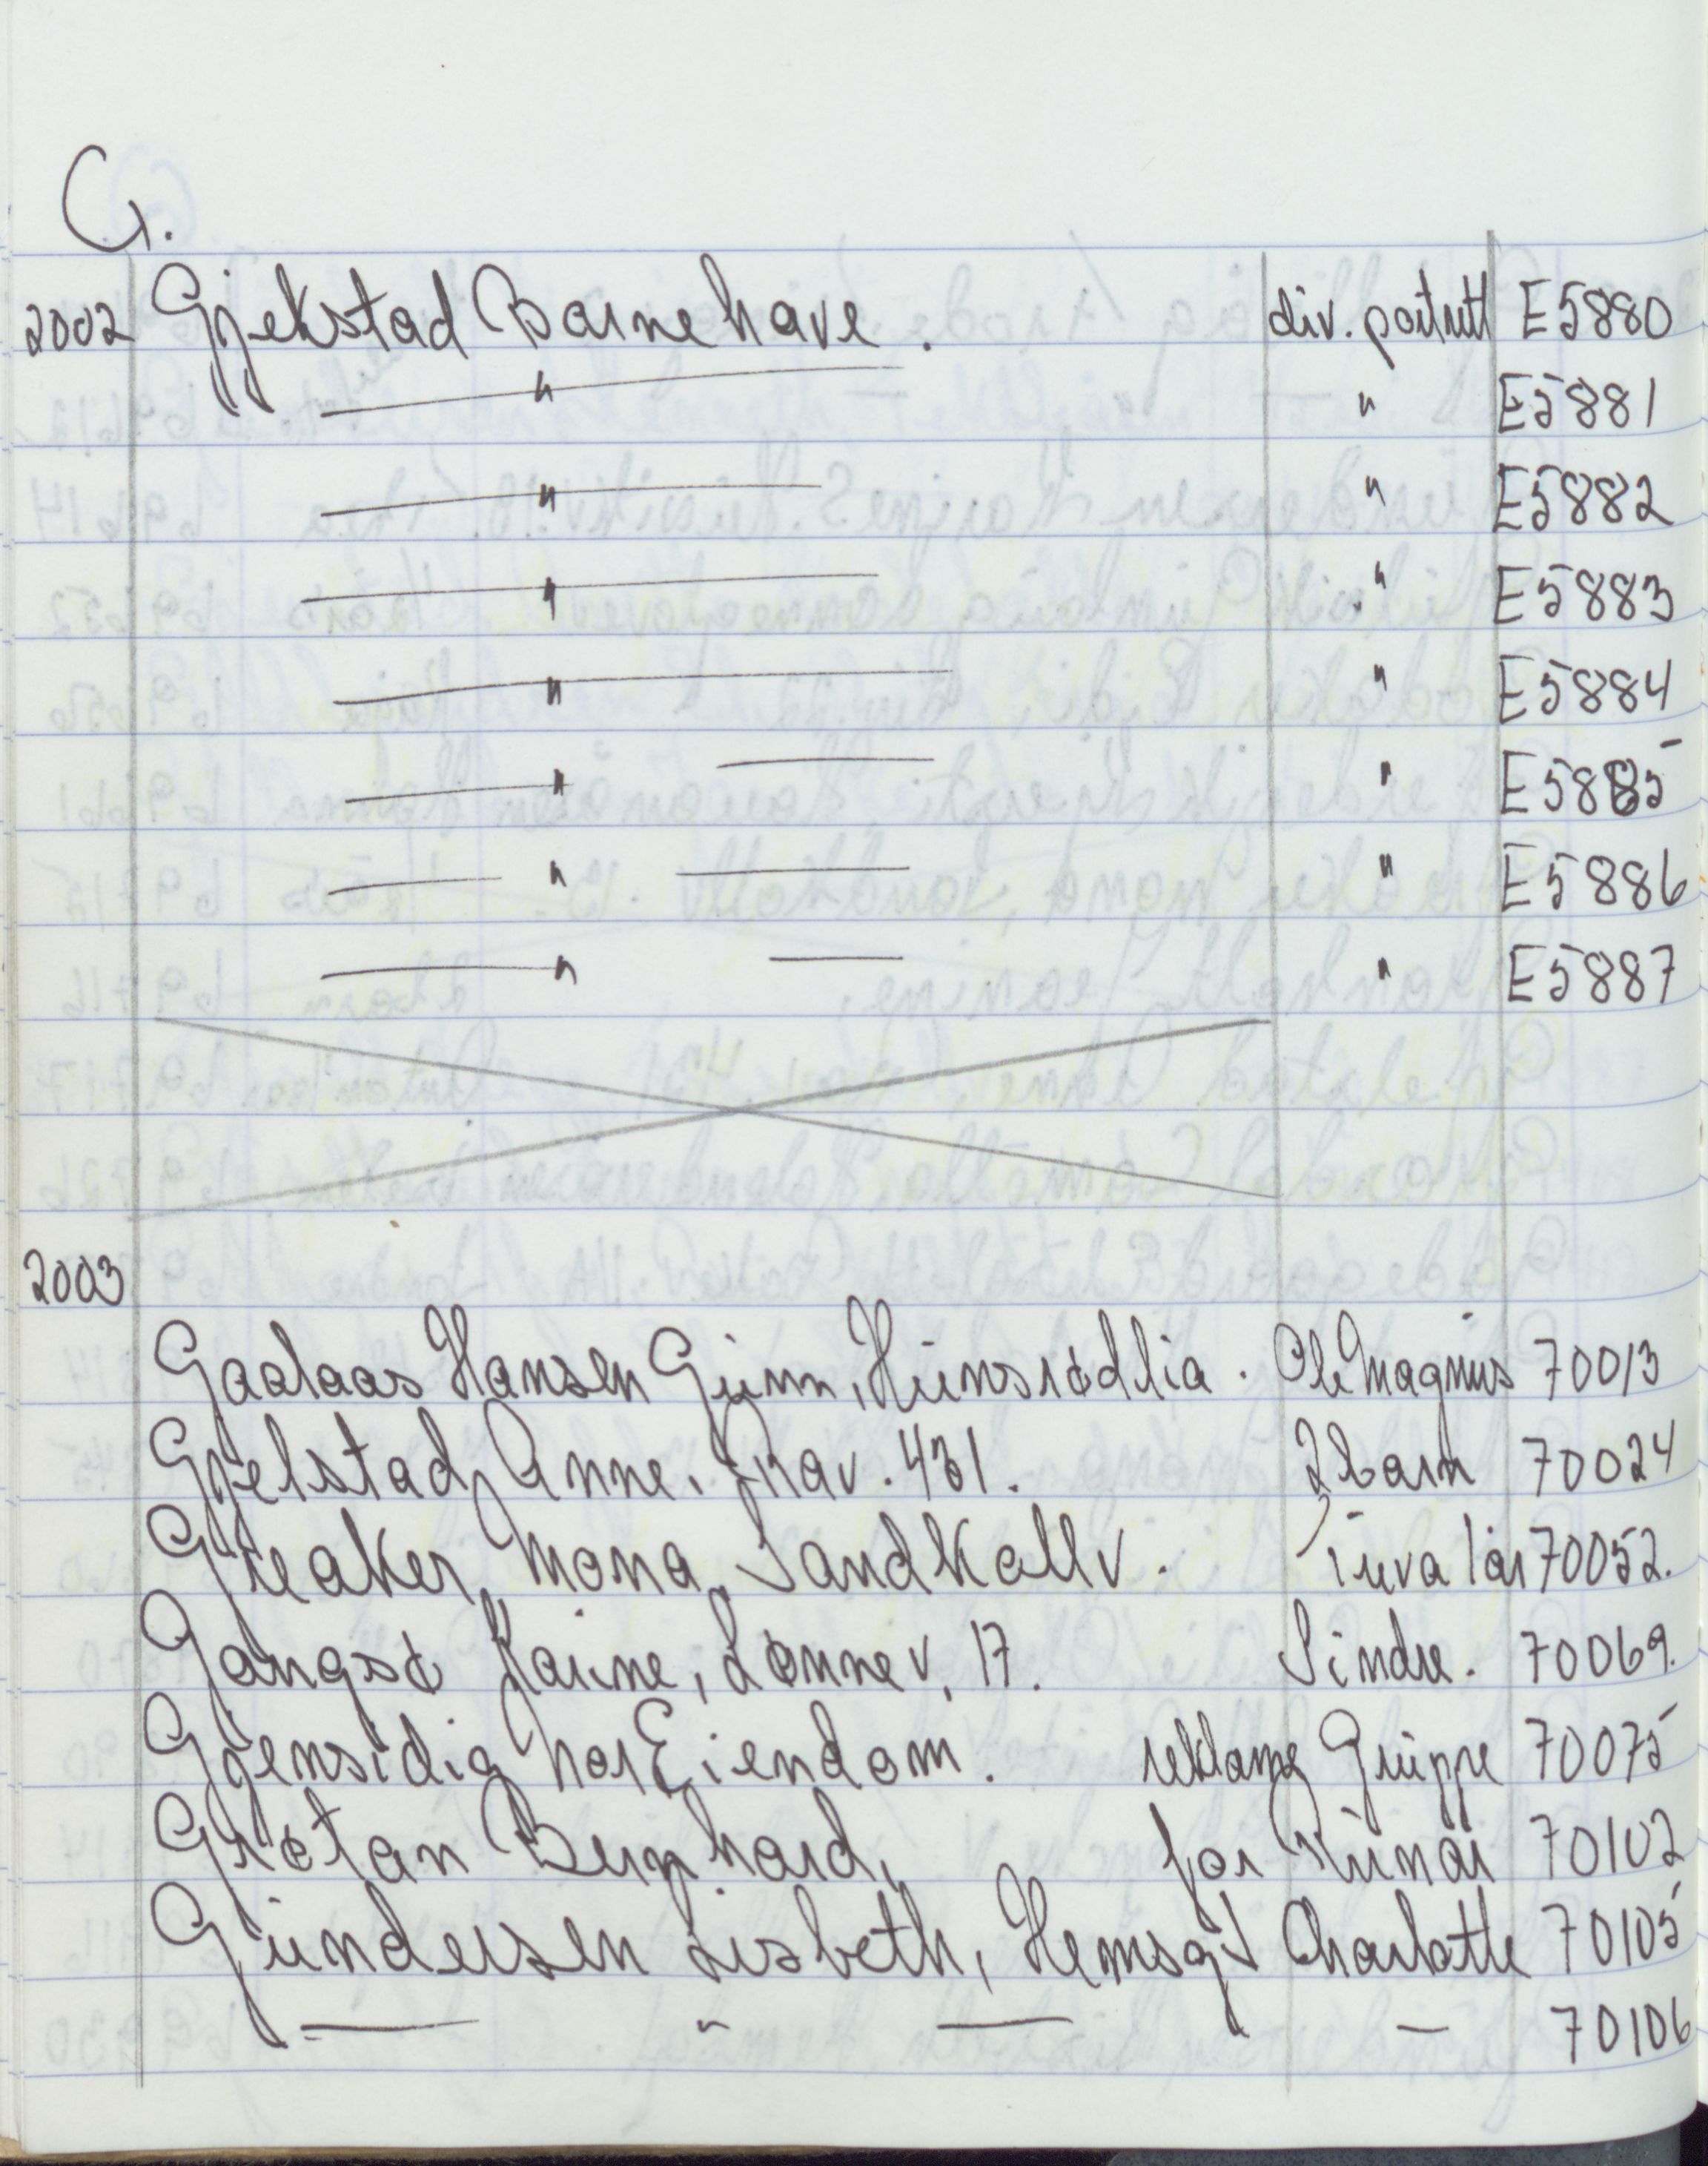 G.
2002 Gjekstad Barnehave. div. portrett E5880
" " E5881
" " E5882
" " E5883
" " E5884
" " E5885
" " E5886
" " E5887
2003
Gaalaas Hansen Gunn, Hunsrødlia. Ole Magnus 70013
Gjelstad, Anne. Krav. 431. 2 barn 70024
Greaker, Mona, Sandkollv. Tuva 1 år 70052.
Gangsø Karine, Lønnev. 17. Sindre. 70069.
Gjensidig Nor Eiendom. reklame Gruppe 70075
Grøtan Bernhard, for Runar 70102
Gundersen Lisbeth, Hemsgt Charlotte 70105
— " — — 70106